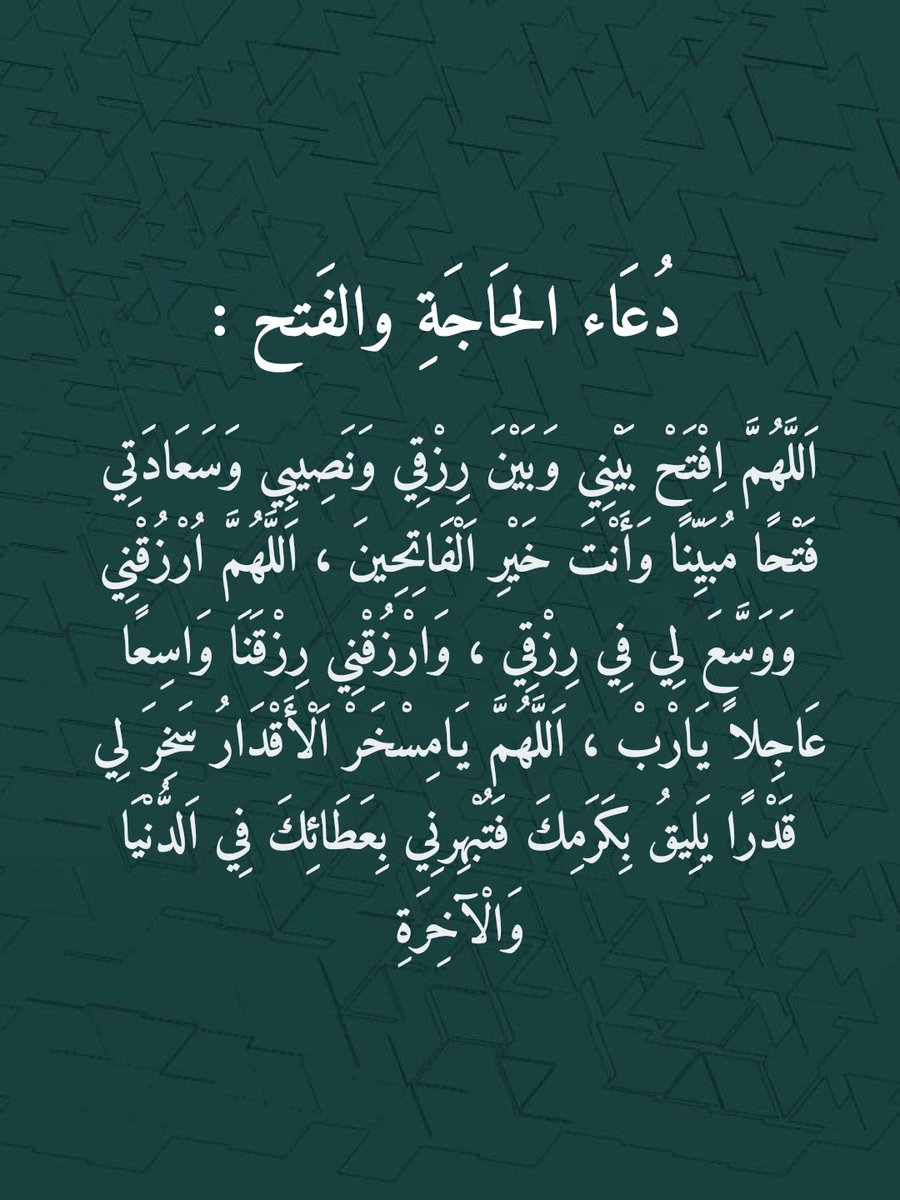 دُعَاء الحَاجَةِ والفَتح :
اَللَّهُمَّ اِفْتَحْ بَيْنِي وَبَيْنَ رِزْقِي وَنَصِيبِي وَسَعَادَتِي
فَتْحًا مُبَيِّنًا وَأَنْتَ خَيْرِ اَلْفَاتِحِينَ ، اَللَّهُمَّ اُرْزُقْنِي
وَوَسَّعَ لِي فِي رِزْقِي ، وَارْزُقْنِي رِزْقَنَا وَاسِعًا
عَاجِلاً يَارْبْ ، اَللَّهُمَّ يَامِسْخَرْ اَلْأَقْدَارُ سَخِرَ لِي
قَدْرًا يَلِيقُ بِكَرَمِكَ فَتُبْهِرِنِي بِعَطَائِكَ فِي اَلدُّنْيَا
وَالْآخِرَةِ